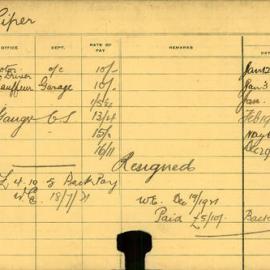 Piper
OFFICE DEPT. RATE OF PAY REMARKS
Motor Driver o/c 10/- Jan 12
Chauffeur Garage 10/- Jan 3
1/5/6 Jan.
Ganger C.S. 13/4 Feb 19
15/2 Nov
16/11 Dec 29
Resigned
£4.10.5 Back Pay
W.E. 18/7/21 W.E. Dec 19/1921
Paid £5/10/- Back